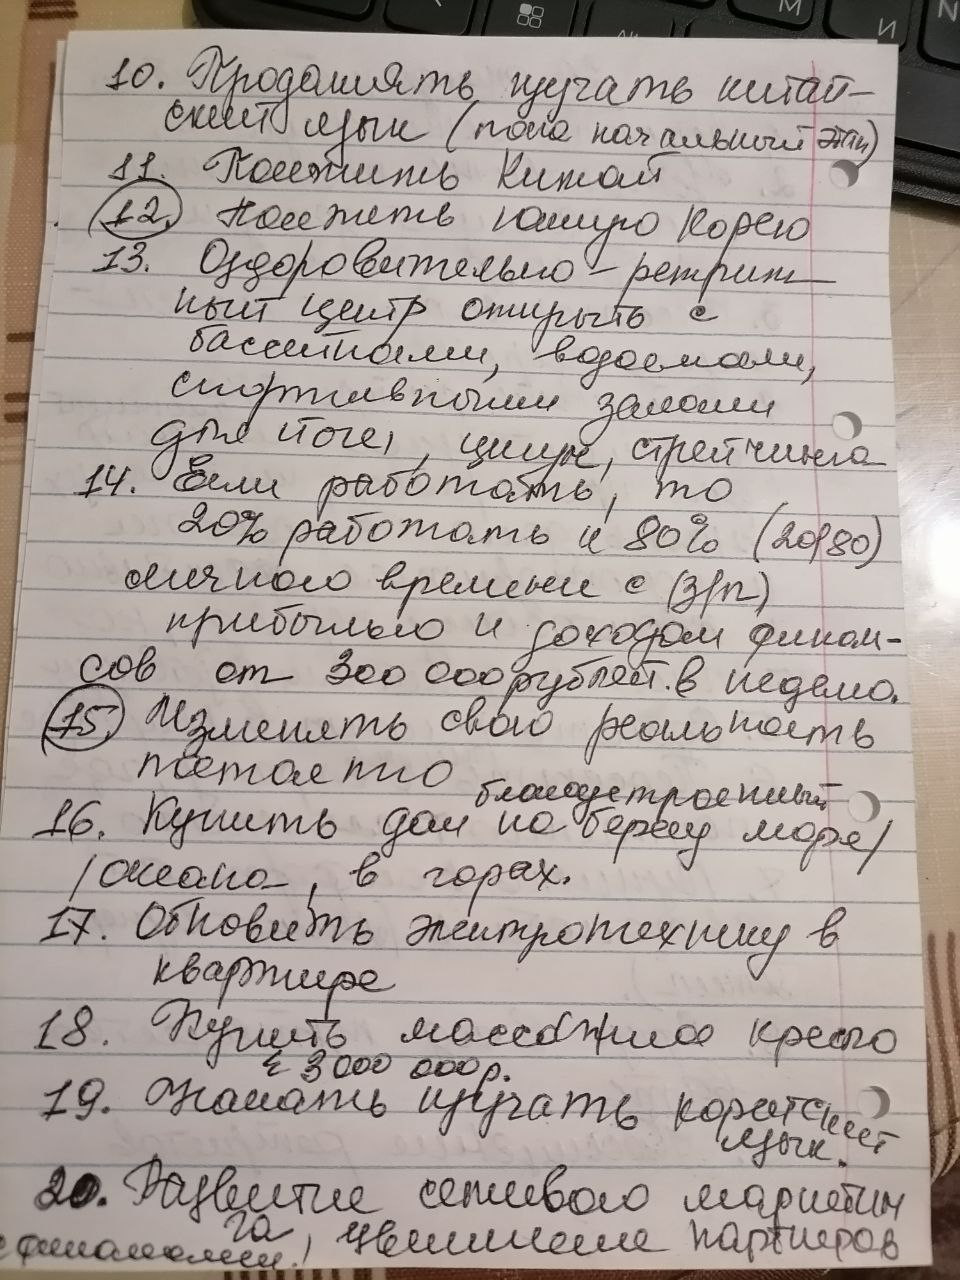 10. Продолжать изучать китай-
ский язык (пока начальный этап)
11. Посетить Китай
12. Посетить южную Корею
13. Оздоровительно-ретрит
ный центр открыть с
бассейнами, водоемами,
спортивными залами
для йоги, цигун, стрейчинга
14. Если работать, то
20% работать и 80% (20/80)
личного времени с (з/п)
прибылью и доходом финан-
сов от 300 000 рублей в неделю.
15. Изменять свою реальность
постоянно
благоустроенный
16. Купить дом на берегу моря/
/океана, в горах.
17. Обновить электротехнику в
квартире
18. Купить массажное кресло
3 000 000 р.
19. Начать изучать корейский
язык.
20. Развитие сетевого маркетин
га, увеличение партнеров
с филиалами.